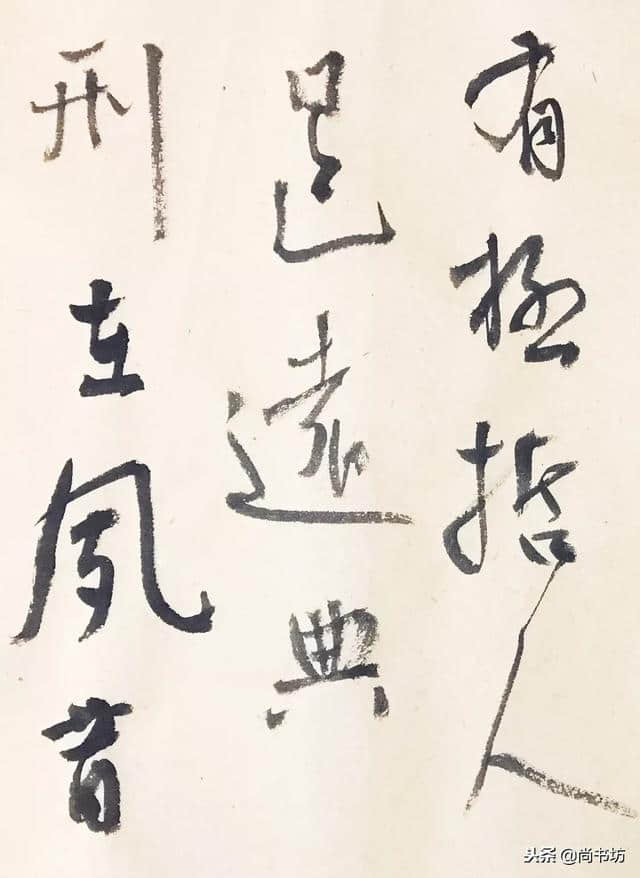 有極哲人
日已遠典
刑在夙昔
头条 @尚书坊